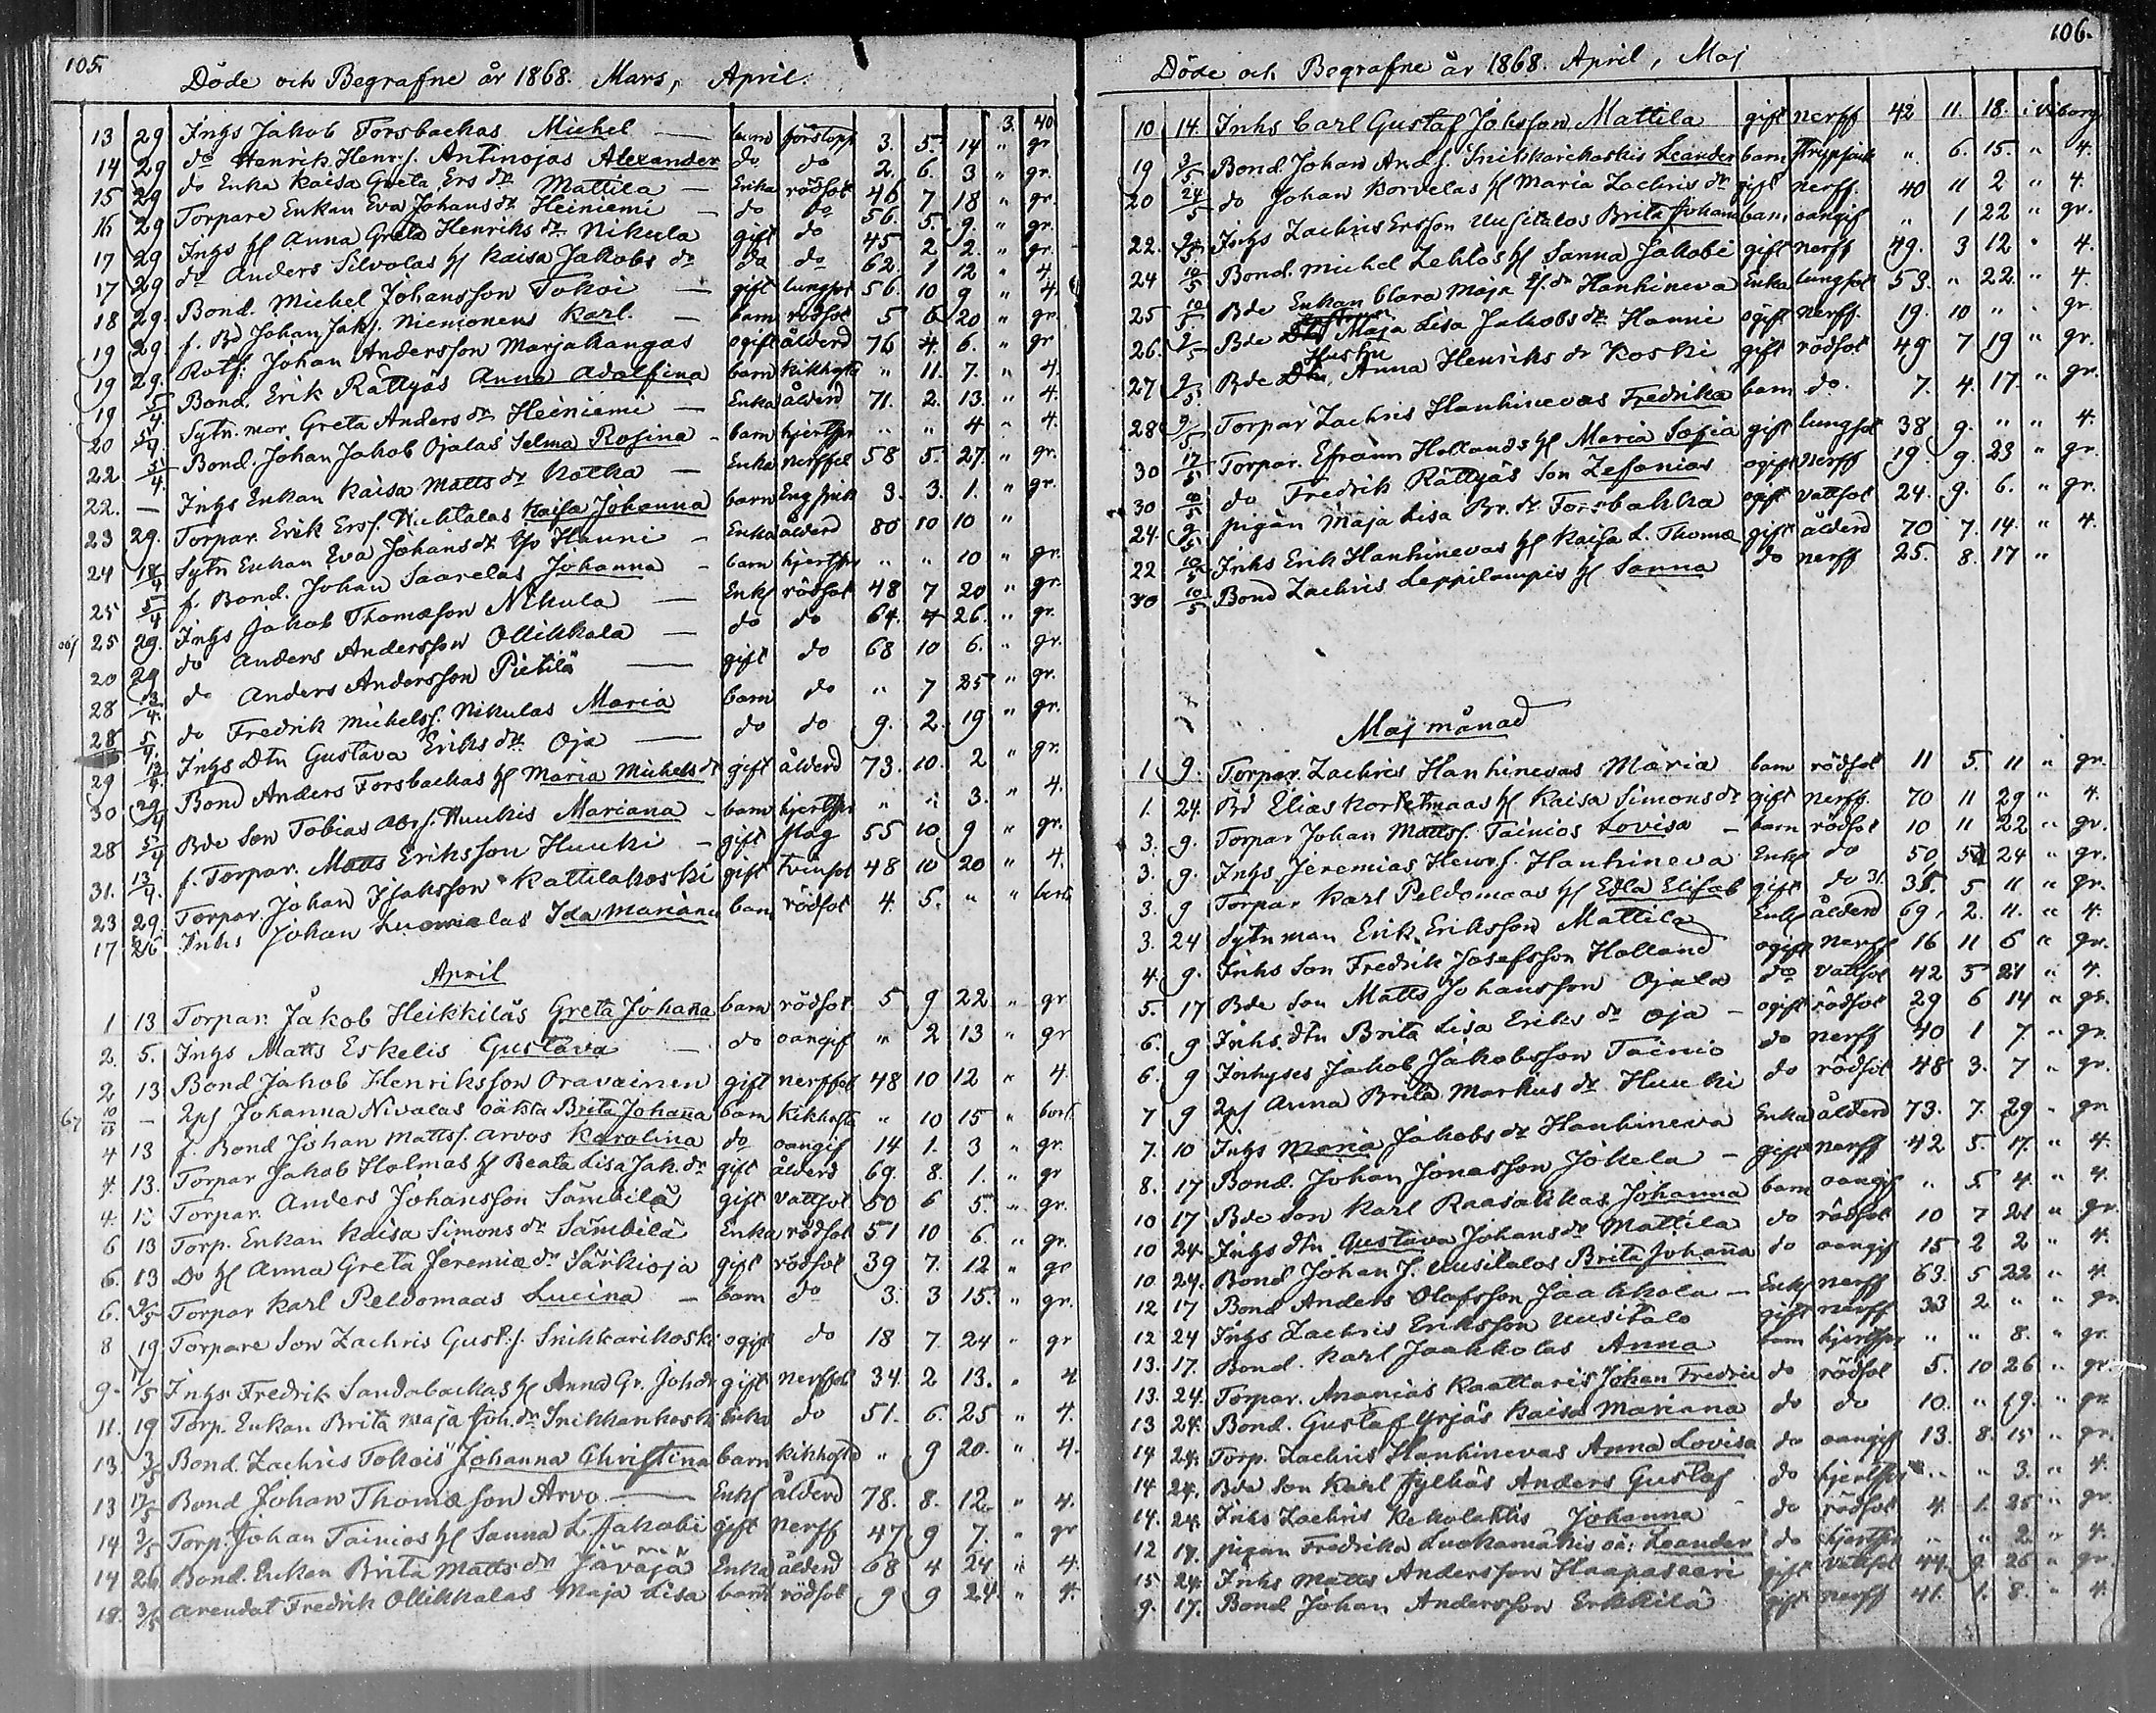 105.
Döde och Begrafne år 1868. Mars, April.
3. 40
13 29 Inhs Jakob Forsbackas Michel — barn förstopp 3. 5. 14 " gr
14 29 do Henrik Henr.s. Antinojas Alexander do do 2. 6. 3 " gr.
15 29 do Enka Kaisa Greta Ers dr Mattila — Enka rödsot 46 7 18 " gr.
16 29 Torpare Enkan Eva Johans dr Heiniemi — do do 56. 5. 9. " gr.
17 29 Inhs H Anna Greta Henriks dr Nikula gift do 45 2 2. " gr.
17 29 do Anders Silvolas H Kaisa Jakobs dr do do 62. 1 12 " 4.
18 29. Bond. Michel Johansson Tokoi — gift lungsot 56. 10 9 " 4.
19 29. f. Bd Johan Jaks. Niemonens Karl. — barn rödsot 5 6 20 " gr
19 29. Rotf: Johan Andersson Marjakangas ogift ålderd 76 4. 6. " gr
19 5/4 Bond. Erik Rättyäs Anna Adolfina barn kikhosta " 11. 7. " 4.
20 5/4. Sytn. mor Greta Anders dr Heiniemi — Enka ålderd 71. 2. 13. " 4.
22 5/4. Bond. Johan Jakob Ojalas Selma Rosina - barn hjertspr " " 4 " 4.
22. — Inhs Enkan Kaisa Matts dr Kotka — Enka nerffeb 58 5. 27. " gr.
23 29. Torpar. Erik Ers.s. Huhtalas Kaisa Johanna barn Eng sjuk 3. 3. 1. " gr.
24 18/4 Sytn Enkan Eva Johans dr Hanni - Enka ålderd 80 10 10 " 4.
25 5/4 f. Bond. Johan Saarelas Johanna - barn hjertspr " " 10 " gr.
25 29. Inhs Jakob Thomasson Nikula — Enkl rödsot 48 7 20 " gr.
20 29 do Anders Andersson Ollikkala — do do 64. 4 26. " gr.
28 13/4. do Anders Andersson Pietilä — gift do 68 10 6. " gr.
28 5/4. do Fredrik Michels s. Nikulas Maria barn do " 7 25 " gr.
29 13/4. Inhs Dtn Gustava Eriks dr Oja — do do 9. 2. 19 " gr.
30 29/4 Bond Anders Forsbackas H Maria Michels dr gift ålderd 73. 10. 2 " gr.
28 5/4 Bde Son Tobias Abr.s. Huukis Mariana - barn hjertspr " " 3. " 4.
31. 13/4. f. Torpar. Matts Eriksson Huuki - gift slag 55 10 9 " gr.
23 29. Torpar. Johan Isaksson Kattilakoski gift tvinsot 48 10 20 " 4.
17 26 Inhs Johan Luomalas Ida Mariana barn rödsot 4. 5. " "
April
1 13 Torpar. Jakob Heikkiläs Greta Johana barn rödsot 5 9 22 " gr
2. 5. Inhs Matts Eskelis Gustava — do oangif " 2 13 " gr
2 13 Bond Jakob Henriksson Oravainen gift nerffeb 48 10 12 " 4.
67 — 2ps Johanna Nivalas oäkta Brita Johana barn kikhosta " 10 15 "
4 13 f. Bond Johan Matts s. Arvos Karolina do oangif 14 1. 3 " gr.
4. 13. Torpar Jakob Holmas H Beata Lisa Jak. dr gift ålderd 69. 8. 1. " gr
4. 13 Torpar. Anders Johansson Sämbilä gift vattsot 50 6 5. " gr.
6 13 Torp. Enkan Kaisa Simons dr Sämbilä Enka rödsot 51 10 6. " gr.
6. 13 Do H Anna Greta Jeremiæ dr Särkioja gift rödsot 39 7. 12 " gr
6. 9/5 Torpar Karl Peldomaas Lucina — barn do 3. 3 15. " gr.
8 19. Torpare Son Zachris Gust.s. Snikkarikoski ogift do 18 7. 24 " gr
9. 17/5 Inhs Fredrik Sandabackas H Anna Gr. Joh dr gift nerffeb 34. 2 13. " 4
11. 19 Torp. Enkan Brita Maja Joh. dr Snikkarikoski Enka do 51. 6. 25 " 4.
13. 3/5 Bond. Zachris Tokois Johanna Christina barn kikhosta " 9 20. " 4.
13 17/5 Bond Johan Thomæson Arvo — Enkl ålderd 78. 8. 12. " 4.
14. 3/5 Torp. Johan Tainios H Sanna L. Jakobi gift nerff 47 9 7. " gr
14 26. Bond. Enkan Brita Matts dr Jäväjä Enka ålderd 68 4 24 " 4.
18. 3/5 Arendat Fredrik Ollikkalas Maja Lisa barn rödsot 9 9 24. " 4.
106.
Döde och Begrafne år 1868. April, Maj
10 14. Inhs Carl Gustaf Johsson Mattila gift nerff 42 11. 18. i Viborg
19 3/5 Bond. Johan And.s. Snikkarikoskis Leander barn strypsjuk " 6. 15. " 4.
20 24/5 do Johan Borvelas H Maria Zachris dr gift nerff. 40 11 2 " 4.
22. Inhs Zachris Ersson Uusitalos Brita Johana barn oangif " 1 22 " gr.
24 10/5 Bond. Michel Lehtos H Sanna Jakobi gift nerff 49. 3 12 " 4.
25 10/5. Bde Enkan Clara Maja dr Hanhineva Enka lungsot 53. " 22. " 4.
26. Bde Maja Lisa Jakobs dr Hanni ogift nerff. 19. 10 " " gr
27 9/5. Bde Hustru Anna Henriks dr Koski gift rödsot 49 7 19 " gr.
28 9/5 Torpar Zachris Hanhinevas Fredrika barn do. 7. 4. 17. " gr.
30 17/5 Torpar. Efraim Hollands H Maria Sofia gift lungsot 38 9. " " 4.
30 do Fredrik Rättyäs Son Zefanias ogift nerff 19. 9. 23 " gr.
24. 9/5 pigan Maja Lisa Br. dr Forsbakka ogift vattsot 24. 9. 6. " gr.
22 10/5 Inhs Erik Hanhinevas H Kaisa L. Thomæ gift ålderd 70 7. 14. " 4.
30 10/5 Bond Zachris Leppilampis H Sanna do nerff 25. 8. 17 "
Maj månad
1 9. Torpar. Zachris Hanhinevas Maria barn rödsot 11 5. 11 " gr.
1. 24. Bd Elias Korpetmaas H Kaisa Simons dr gift nerff. 70 11 29 " 4.
3. 9. Torpar Johan Matts s. Tainios Lovisa - barn rödsot 10 11 22 " gr.
3. 9. Inhs Jeremias Henr.s. Hanhineva Enkl do 50 24 " gr.
3. 9 Torpar Karl Peldomaas H Edla Elisab gift do 31. 38. 5 11 " gr.
3. 24 Sytn man Erik Eriksson Mattila Enkl ålderd 69. 2. 11. " 4.
4. 9. Inhs Son Fredrik Josefsson Holland ogift nerff 16 11 6 " gr.
5. 17 Bde Son Matts Johansson Ojala do vattsot 42 5 21 " 4.
6. 9 Inhs. dtn Brita Lisa Eriks dr Oja - ogift rödsot 29 6 14 " gr.
6. 9 Inhyses Jakob Jakobsson Tainio do nerff 40 1 7. " gr.
7 9 2ps Anna Brita Markus dr Huuki do rödsot 48 3. 7 " gr.
7. 10 Inhs Maria Jakobs dr Hanhineva Enka ålderd 73. 7. 29 " gr
8. 17 Bond. Johan Jonasson Jokela - gift nerff 42 5. 17. " 4.
10 17 Bde Son Karl Raasakkas Johanna barn oangif " 5 4. " 4.
10 24. Inhs dtn Gustava Johans dr Mattila do rödsot 10 7 21 " gr.
10 24. Bond Johan J. Uusitalos Brita Johana do oangif 15 2 2 " 4.
12 17 Bond Anders Olofsson Jaakkola — Enkl nerff 63. 5 22 " 4.
12 24 Inhs Zachris Eriksson Uusitalo gift nerff 33 2 " " gr.
13. 17. Bond. Karl Jaakkolas Anna barn hjertspr " " 8. " gr.
13. 24. Torpar. Ananias Kaattaris Johan Fredric do rödsot 5. 10 26 " gr.
13 24. Bond. Gustaf Yrjäs Kaisa Mariana do do 10. " 19. " gr
14 24. Torp. Zachris Hanhinevas Anna Lovisa do oangif 13. 8. 15 " gr.
14 24. Bde Son Karl Jylkäs Anders Gustaf do hjertspr " " 3. " 4.
14. 24. Inhs Zachris Kekolahtis Johanna do rödsot 4. 1. 25 " gr
12 17. pigan Fredrika Luokamäkis oä: Leander do hjertspr " " 2. " 4.
15 24. Inhs Matts Andersson Haapasaari gift vattsot 44. 9. 26 " gr.
9. 17. Bond Johan Andersson Erkkilä gift nerff 41. 1. 8. " 4.